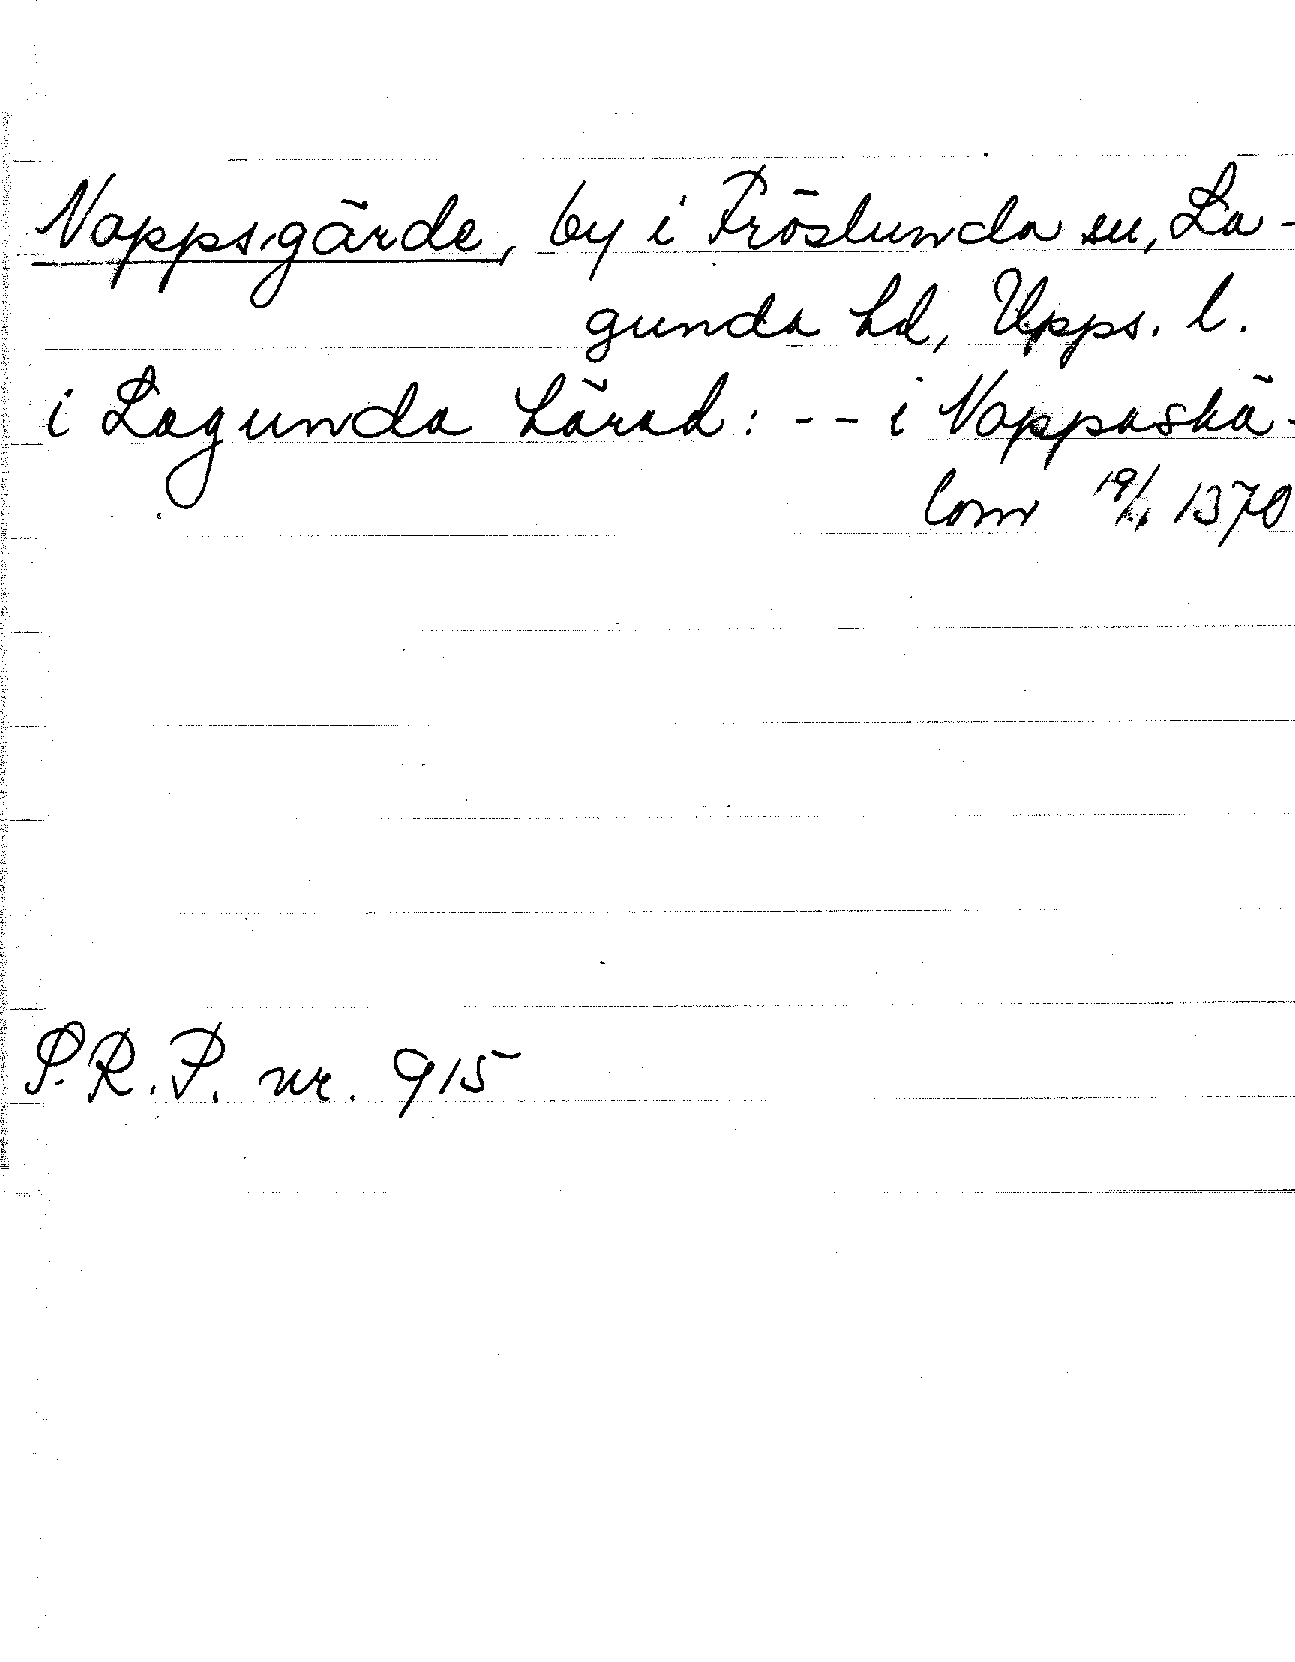 Nappsgärde, by i Fröslunda sn, La-
gunda hd, Upps. l.
i Lagunda härad: -- i Nappaskä-
lom 1370
S.R.P. nr. 915